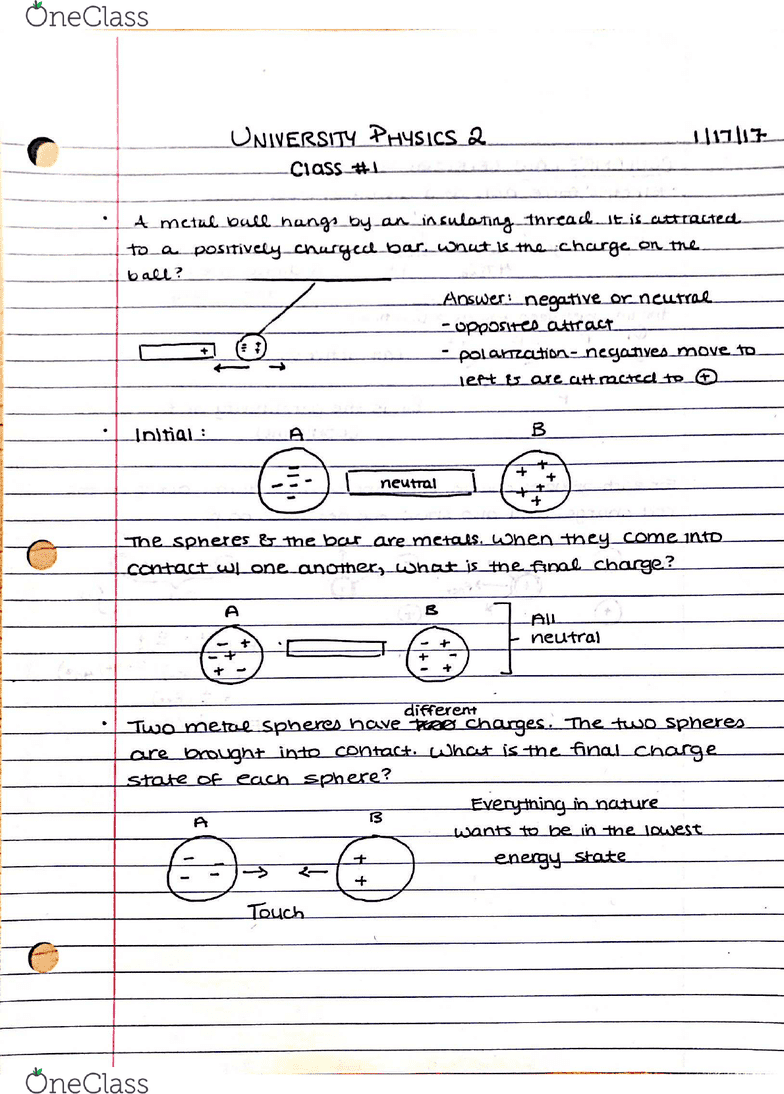 OneClass
UNIVERSITY PHYSICS 2
1/17/17
Class #1
· A metal ball hangs by an insulating thread. It is attracted
to a positively charged bar. What is the charge on the
ball?
Answer: negative or neutral
- opposites attract
- polarization - negatives move to
left & are attracted to ⊕
· Initial :
A
B
neutral
The spheres & the bar are metals. When they come into
contact w/ one another, what is the final charge?
A
B
All
neutral
different
· Two metal spheres have charges. The two spheres
are brought into contact. What is the final charge
state of each sphere?
A
B
Everything in nature
wants to be in the lowest
energy state
Touch
OneClass